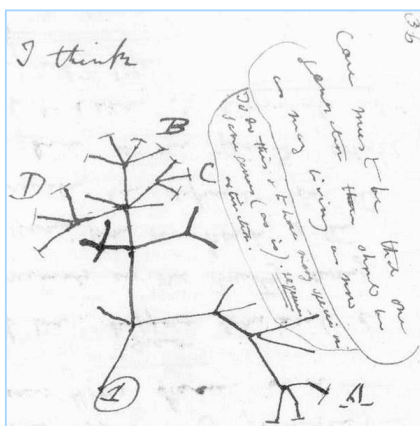 36
I think
Case must be that one
generation then should be
as many living as now
To do this & to have many species in
same genus (as is) requires
extinction
B
D
C
A
1